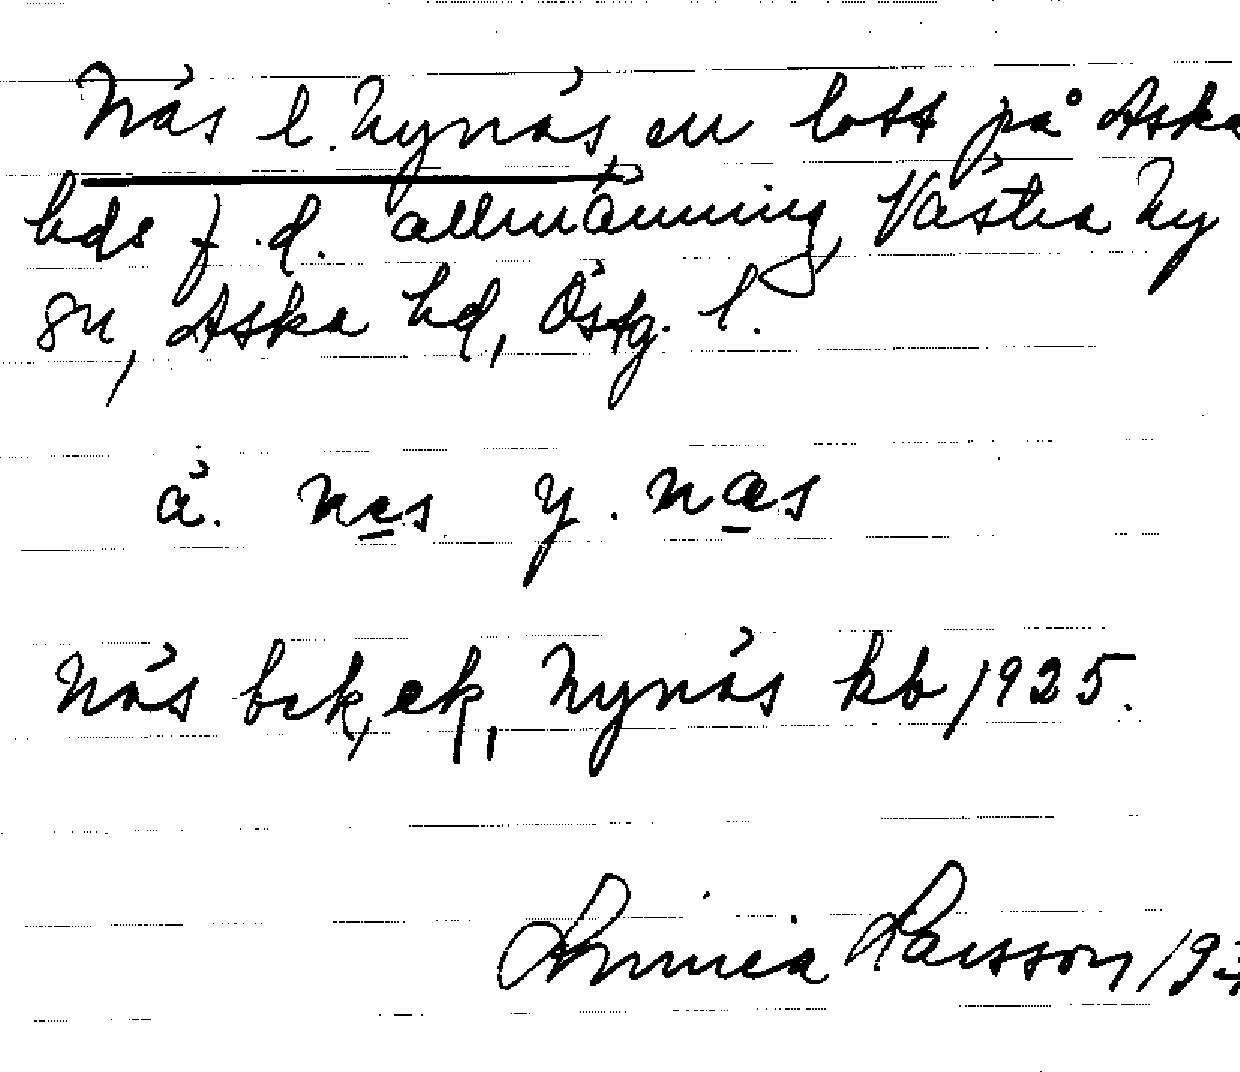 Näs l. Nynäs, en lott på Aska
hds f.d. allmänning, Västra Ny
sn, Aska hd, Östg. l.
ä. nes y. næs
Näs bek, ek, Nynäs kb 1925.
Linnea Larsson 193